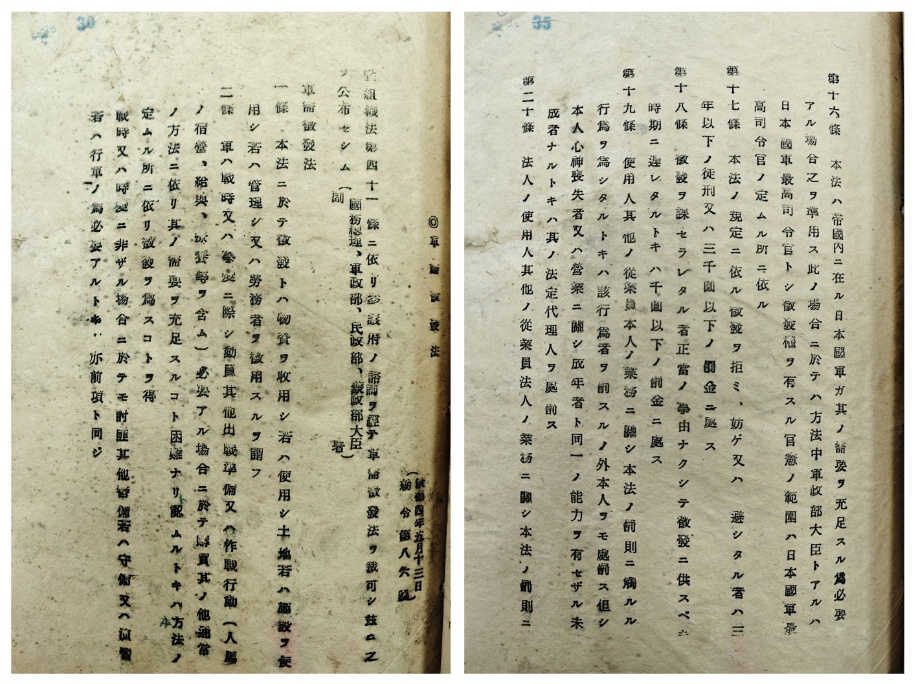 30
◎軍需徵發法
康德四年五月十三日
勅令第八六號
組織法第四十一條ニ依リ參議府ノ諮詢ヲ經テ軍需徵發法ヲ裁可シ茲ニ之
ヲ公布セシム
(國務總理、軍政部、民政部、大臣
副署)
軍需徵發法
一條 本法ニ於テ徵發トハ物資ヲ收用シ若ハ使用シ土地若ハ施設ヲ使
用シ若ハ管理シ又ハ勞務者ヲ徵用スルヲ謂フ
二條 軍ハ戰時又ハ事變ニ際シ動員其他出戰準備又ハ作戰行動(人馬
ノ宿營、給與、療養等ヲ含ム)必要アル場合ニ於テ購買其ノ他通常
ノ方法ニ依リ其ノ需要ヲ充足スルコト困難ナリ認ムルトキハ方法ノ
定ムル所ニ依リ徵發ヲ爲スコトヲ得
戰時又ハ時變ニ非ザル場合ニ於テモ討匪其他警備若ハ守備又ハ演習
若ハ行軍ノ爲必要アルトキ亦前項ト同ジ
35
第十六條 本法ハ帝國內ニ在ル日本國軍ガ其ノ需要ヲ充足スル爲必要
アル場合之ヲ準用ス此ノ場合ニ於テハ方法中軍政部大臣トアルハ
日本國軍最高司令官トシ徵發權ヲ有スル官憲ノ範圍ハ日本國軍最
高司令官ノ定ムル所ニ依ル
第十七條 本法ノ規定ニ依ル徵發ヲ拒ミ、妨ゲ又ハ 避シタル者ハ三
年以下ノ徒刑又ハ三千圓以下ノ罰金ニ處ス
第十八條 徵發ヲ課セラレタル者正當ノ事由ナクシテ徵發ニ供スベキ
時期ニ遲レタルトキハ千圓以下ノ罰金ニ處ス
第十九條 使用人其他ノ從業員本人ノ業務ニ關シ本法ノ罰則ニ觸ルル
行爲ヲ爲シタルトキハ該行爲者ヲ罰スルノ外本人ヲモ處罰ス但シ
本人心神喪失者又ハ營業ニ關シ成年者ト同一ノ能力ヲ有セザル未
成者ナルトキハ其ノ法定代理人ヲ處罰ス
第二十條 法人ノ使用人其他ノ從業員法人ノ業務ニ關シ本法ノ罰則ニ